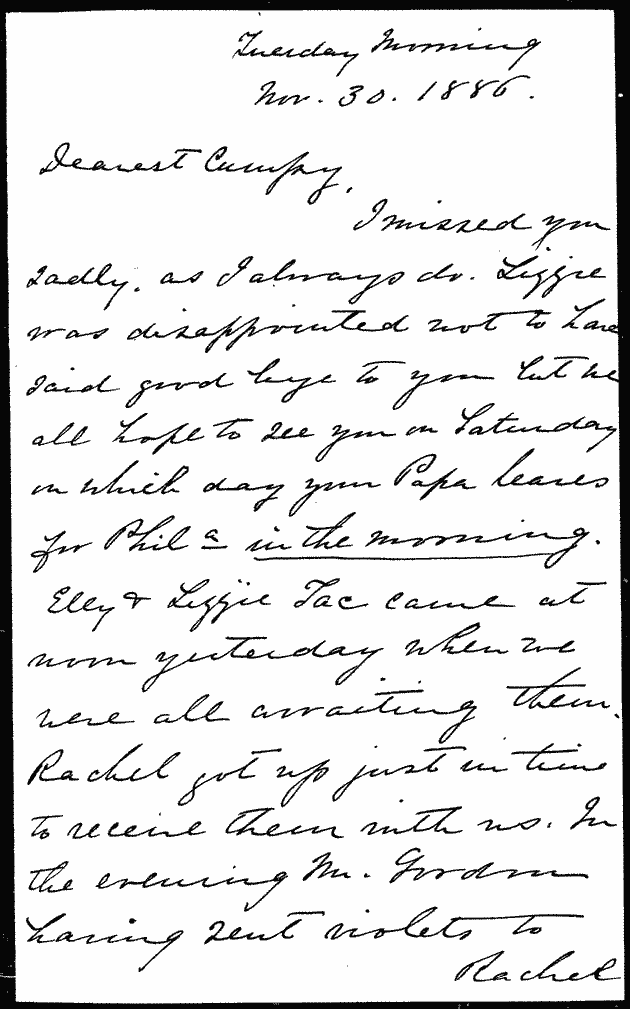 Tuesday Morning
Nov. 30. 1886.
Dearest Cumpy,
I missed you
sadly, as I always do. Lizzie
was disappointed not to have
said good bye to you but we
all hope to see you on Saturday
on which day your Papa leaves
for Phila in the morning.
Elly & Lizzie Tac came at
noon yesterday when we
were all awaiting them.
Rachel got up just in time
to receive them with us. In
the evening Mr. Gordon
having sent violets to
Rachel